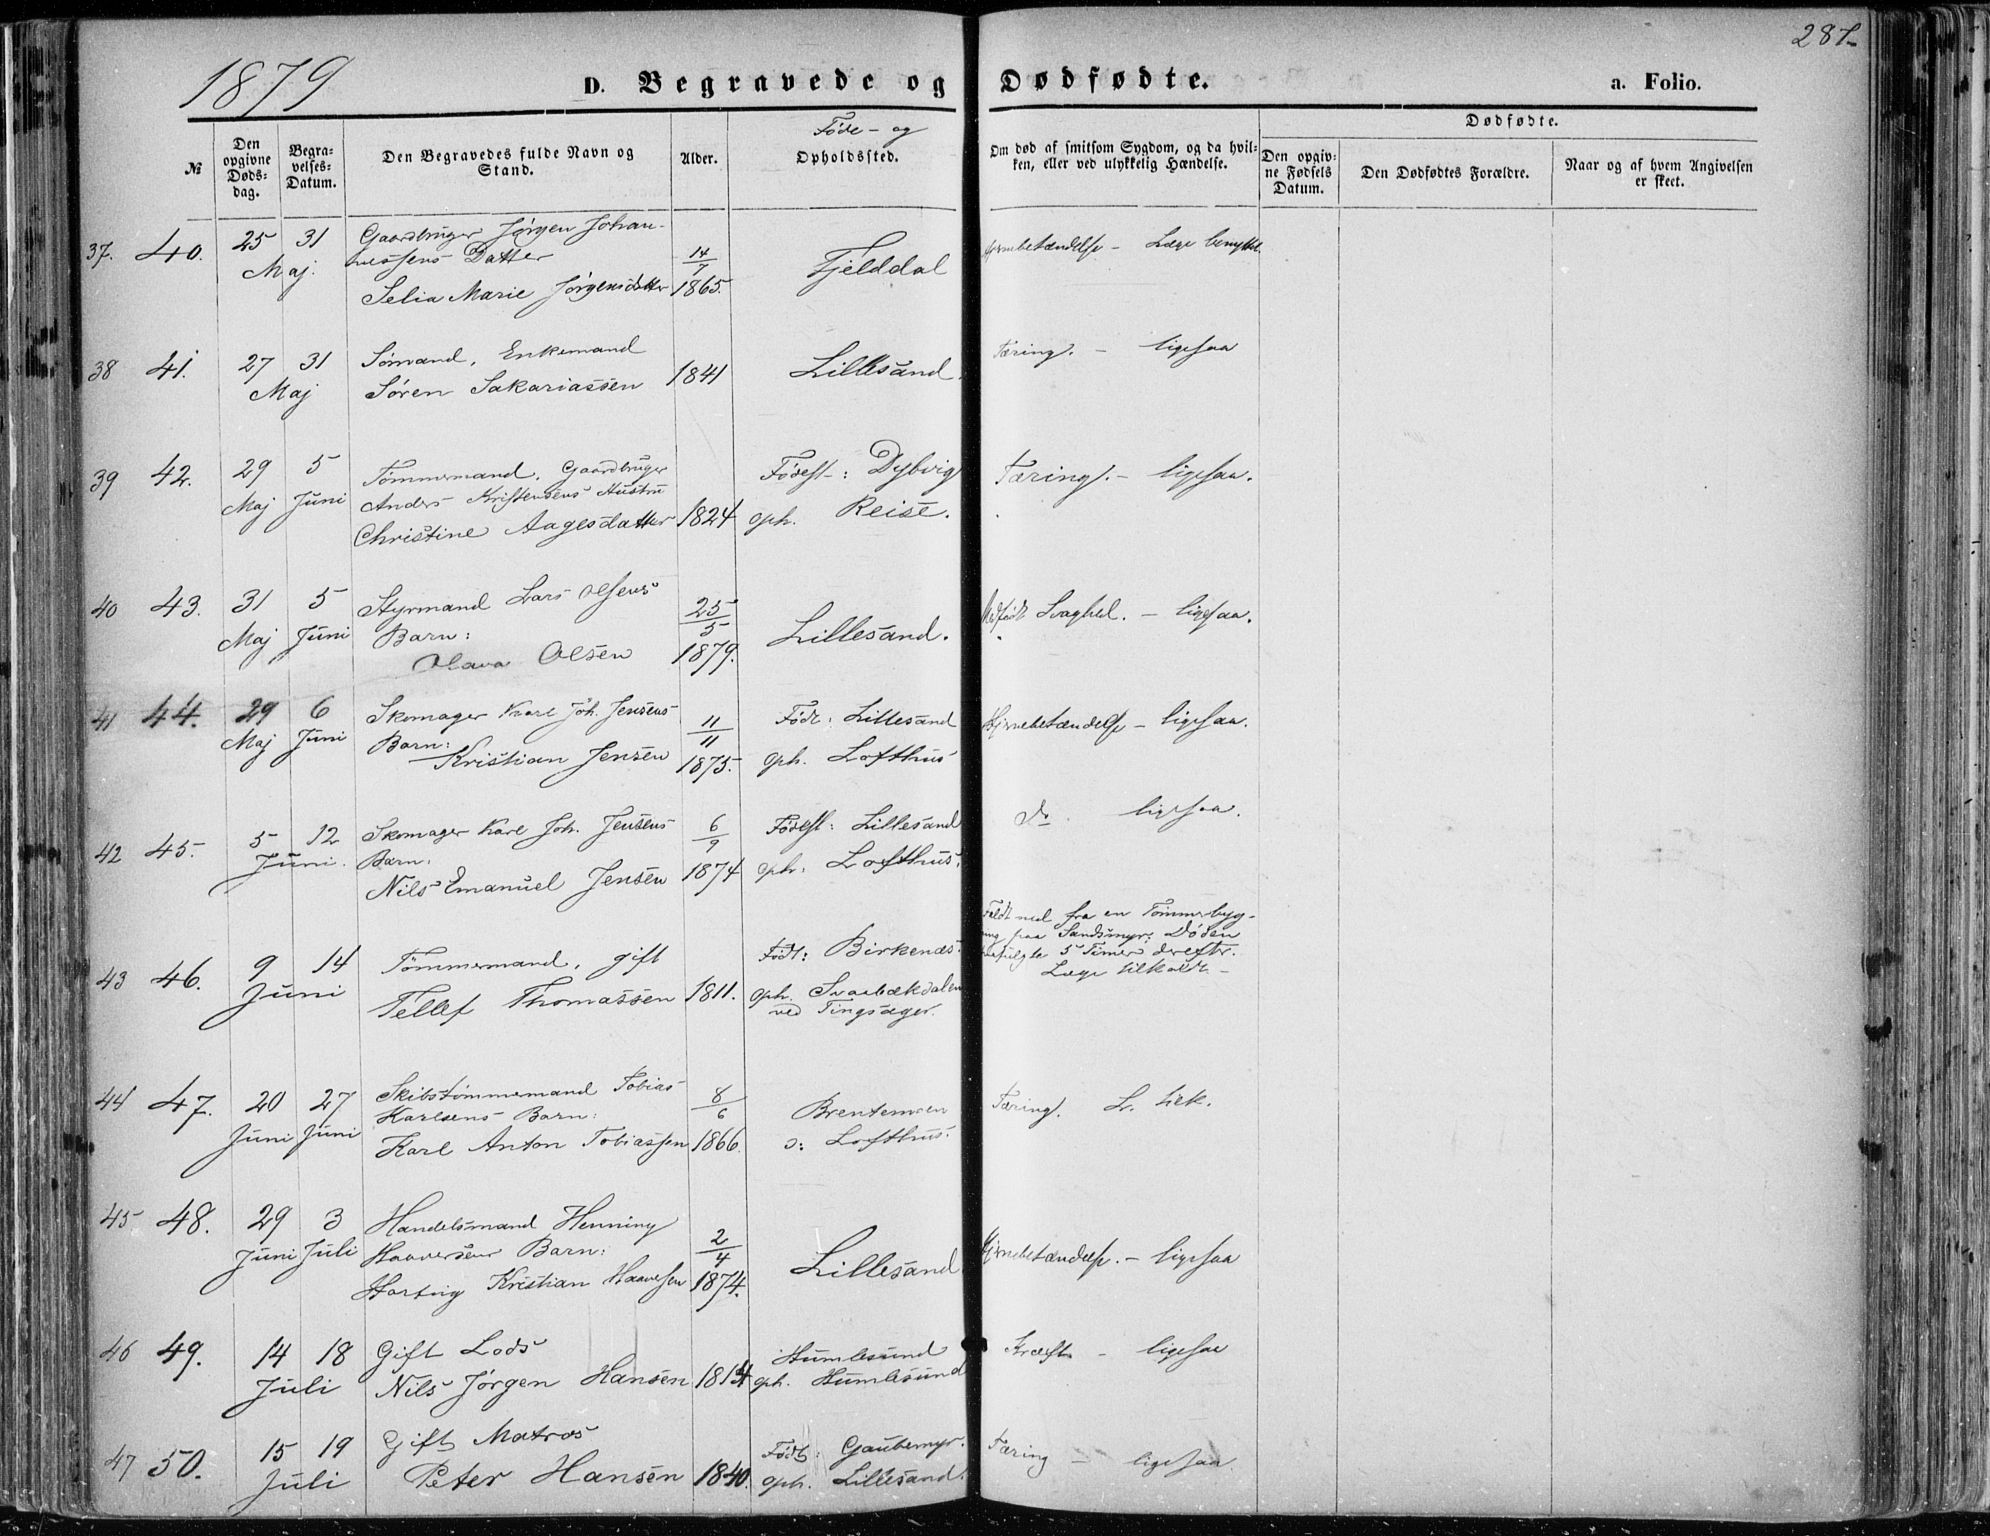 1879
D. Begravede og Dødfødte.
a. Folio.
287
№
Den opgivne Døds-dag.
Begra-velses-Datum.
Den Begravedes fulde Navn og Stand.
Alder.
Føde- og
Opholdssted.
Om død af smitsom Sygdom, og da hvil-
ken, eller ved ulykkelig Hændelse.
Dødfødte.
Den opgiv-ne Fødsels Datum.
Den Dødfødtes Forældre.
Naar og af hvem Angivelsen er skeet.
37. 40. 25 31 Gaardbruger Jørgen Johan-
Maj. nessens Datter 14/7 Fjelddal Hjernebetændelse – Læge benyttet.
Selia Marie Jørgensdatter 1865.
38 41. 27 31 Sømand, Enkemand Tæring. – ligesaa
Maj Søren Sakariassen 1841 Lillesand.
39 42. 29 5 Tømmermand, Gaardbruger Fødest: Dybvig Tæring. – ligesaa.
Maj Juni Anders Kristensens Hustru
Christine Aagesdatter 1824 oph. Reise.
40 43. 31 5 Styrmand Lars Olsens 25/5 Medfødt Svaghed. – ligesaa.
Maj Juni Barn: Lillesand.
Olava Olsen 1879.
41 44. 29 6 Skomager Karl Joh. Jensens 11/11 Født: Lillesand Hjernebetændelse – ligesaa.
Maj Juni Barn:
Kristian Jensen 1875. oph. Lofthus
42 45. 5 12 Skomager Karl Joh. Jensens 6/9 Fødest: Lillesand do. ligesaa.
Juni. Barn:
Nils Emanuel Jensen 1874 oph: Lofthus.
Faldt ned fra en Tømmerbyg-
ning paa Sandsmyr; Døden
paafulgte 5 Timer derefter.
Læge tilkaldt –
43 46. 9 14 Tømmermand, gift Født: Birkenæs.
Juni Tellef Thomassen 1811. oph. Svarbækdalen
ved Tingsager.
44 47. 20 27 Skibstømmermand Tobias 8/6 Tæring. L. tilk.
Juni Juni Karlsens Barn: Brentemoen
Karl Anton Tobiassen 1866. o: Lofthus.
45 48. 29 3 Handelsmand Henning 2/4
Juni Juli Haaversens Barn: Lillesand Hjernebetændelse. – ligesaa
Hartvig Kristian Haavesen 1874.
46 49. 14 18 Gift Lods Humlesund Kræft – ligesaa
Juli Nils Jørgen Hansen 1814 oph. Humlesund
47 50. 15 19 Gift Matros Født: Gaubemyr. Tæring – ligesaa.
Juli Peter Hansen 1840. oph. Lillesand.